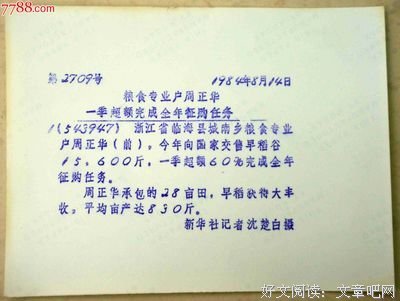 7788.com
第2709号 1984年8月14日
粮食专业户周正华
一季超额完成全年征购任务
1(543947) 浙江省临海县城南乡粮食专业
户周正华(前),今年向国家交售早稻谷
15,600斤,一季超额60%完成全年
征购任务。
周正华承包的28亩田,早稻获得大丰
收,平均亩产达830斤。
新华社记者沈楚白摄
好文阅读:文章吧网